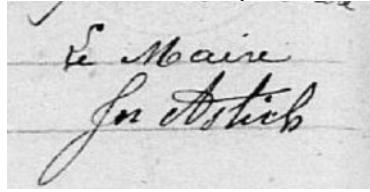 Le Maire
Jn Astich